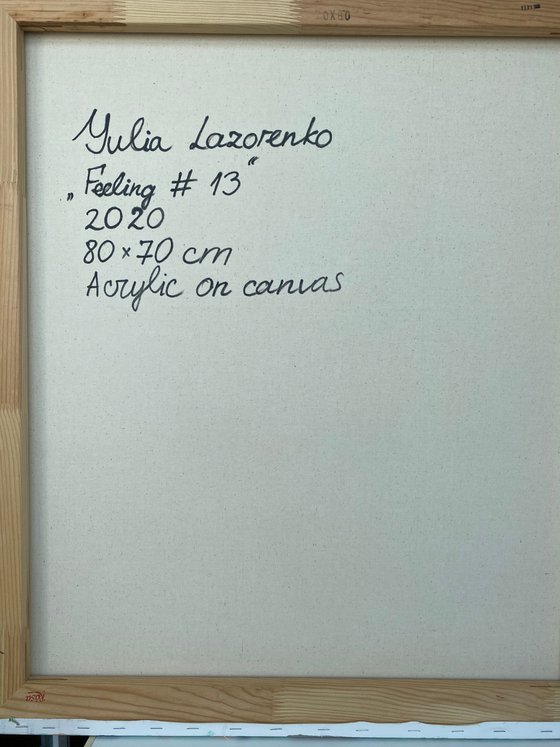 Yulia Lazorenko
„Feeling # 13“
2020
80×70 cm
Acrylic on canvas